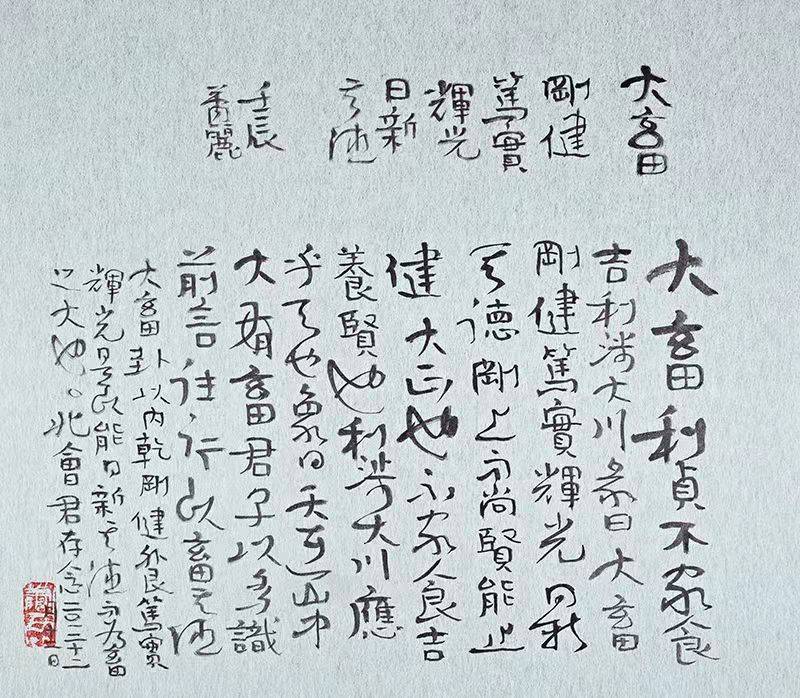 大畜
剛健
篤實
輝光
日新
其德
壬辰
麗
大畜利貞不家食
吉利涉大川彖曰大畜
剛健篤實輝光日新
其德剛上而尚賢能止
健大正也不家食吉
養賢也利涉大川應
乎天也象曰天在山中
大有畜君子以多識
前言往行以畜其德
大畜卦以內乾剛健外艮篤實
輝光是以能日新其德而為畜
之大也。會君存念